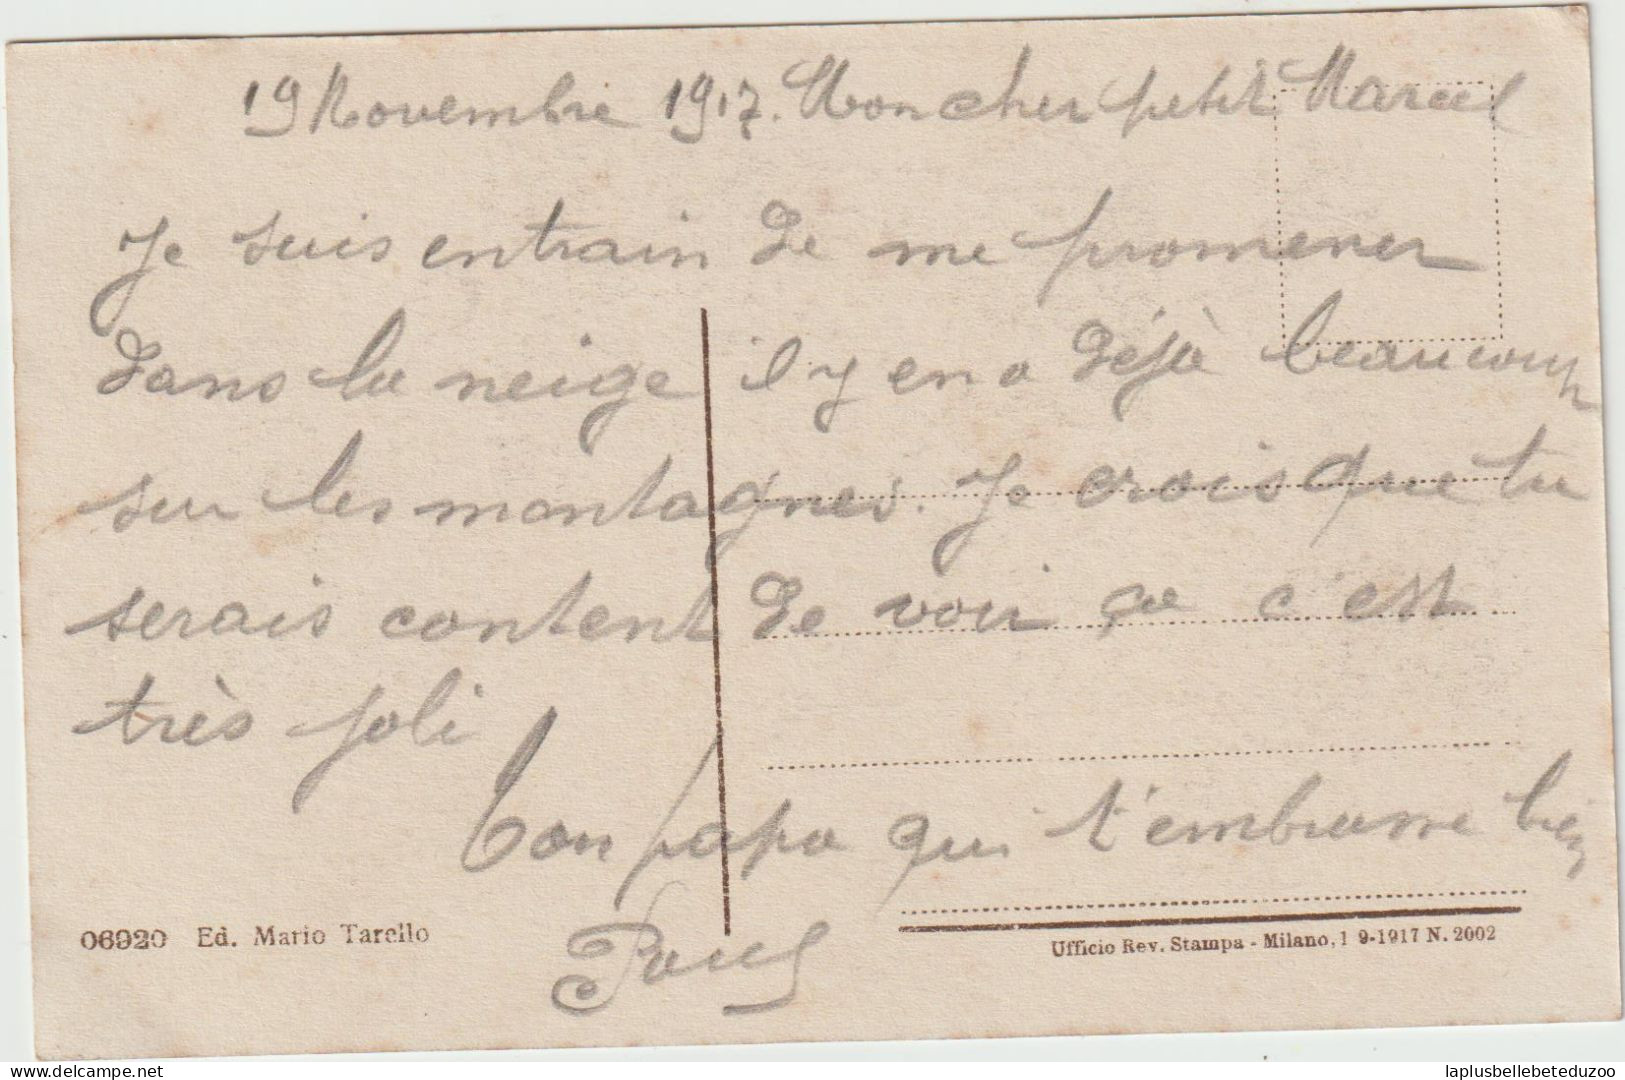 19 Novembre 1917. Mon cher petit Marcel
Je suis entrain de me promener
dans la neige il y en a déjà beaucoup
sur les montagnes. Je crois que tu
serais content de voir ça c'est
très joli
Ton papa qui t'embrasse bien
06920 Ed. Mario Tarello
Ufficio Rev. Stampa - Milano, 1 9-1917 N. 2002
laplusbellebeteduzoo